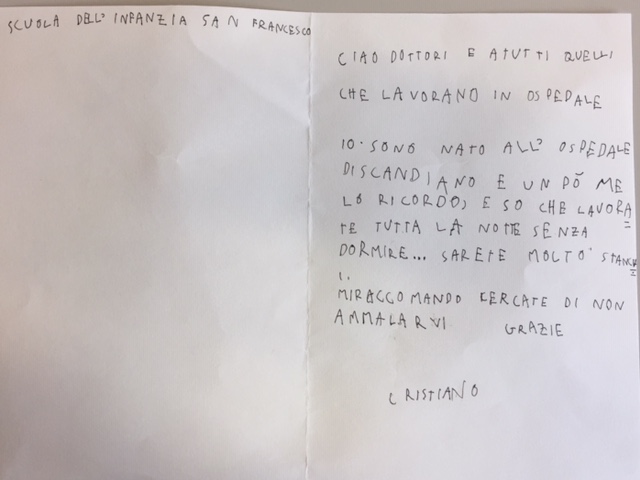 SCUOLA DELL' INFANZIA SAN FRANCESCO
CIAO DOTTORI E ATUTTI QUELLI
CHE LAVORANO IN OSPEDALE
IO. SONO NATO ALL' OSPEDALE
DISCANDIANO E UN PÒ ME
LO RICORDO, E SO CHE LAVORA=
TE TUTTA LA NOTTE SENZA
DORMIRE... SARETE MOLTO' STANCH=
I.
MIRACCOMANDO CERCATE DI NON
AMMALARVI GRAZIE
CRISTIANO